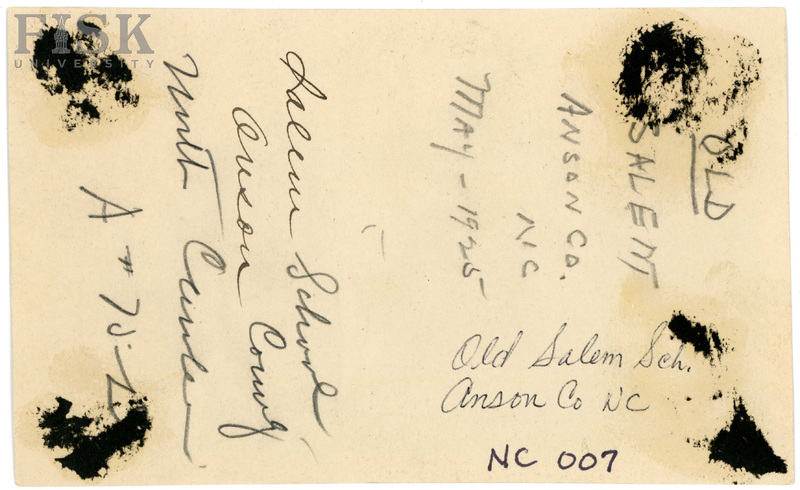 FISK
UNIVERSITY
OLD
SALEM
ANSON CO.
NC
MAY-1925
Salem School
Anson County
North Carolina
Old Salem Sch.
Anson Co NC
NC 007